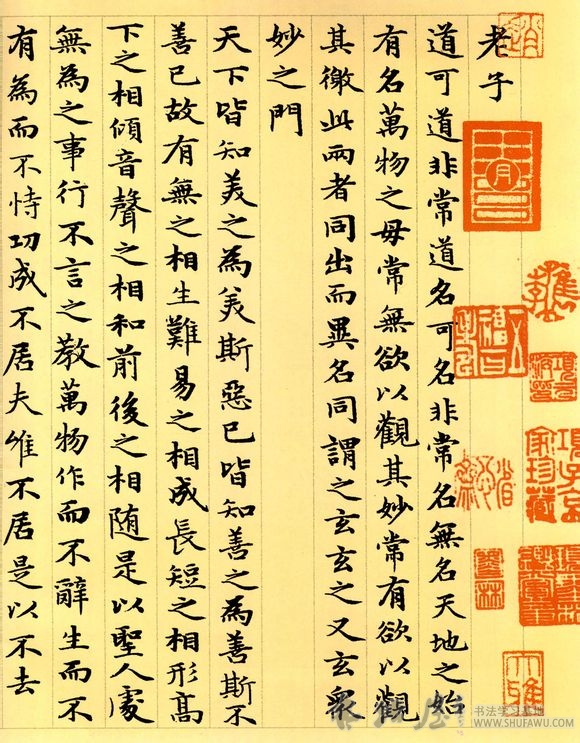 老子
道可道非常道名可名非常名無名天地之始
有名萬物之母常無欲以觀其妙常有欲以觀
其徼此兩者同出而異名同謂之玄玄之又玄衆
妙之門
天下皆知美之為美斯惡已皆知善之為善斯不
善已故有無之相生難易之相成長短之相形髙
下之相傾音聲之相和前後之相随是以聖人處
無為之事行不言之教萬物作而不辭生而不
有為而不恃功成不居夫惟不居是以不去
項子京
家珍藏
墨林
书法学习基地
WWW.SHUFAWU.COM